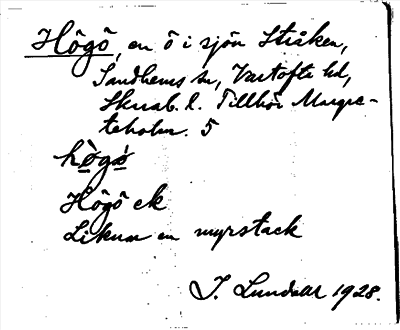 Högö, en ö i sjön Stråken,
Sandhems sn, Vartofta hd,
Skarab. l. Tillhör Margre-
teholm. 5
högö
Högö ek
Liknar en myrstack
J. Lundahl 1928.